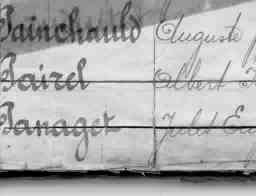 Painchauld Auguste
Pairel Albert
Panaget Jules Eug